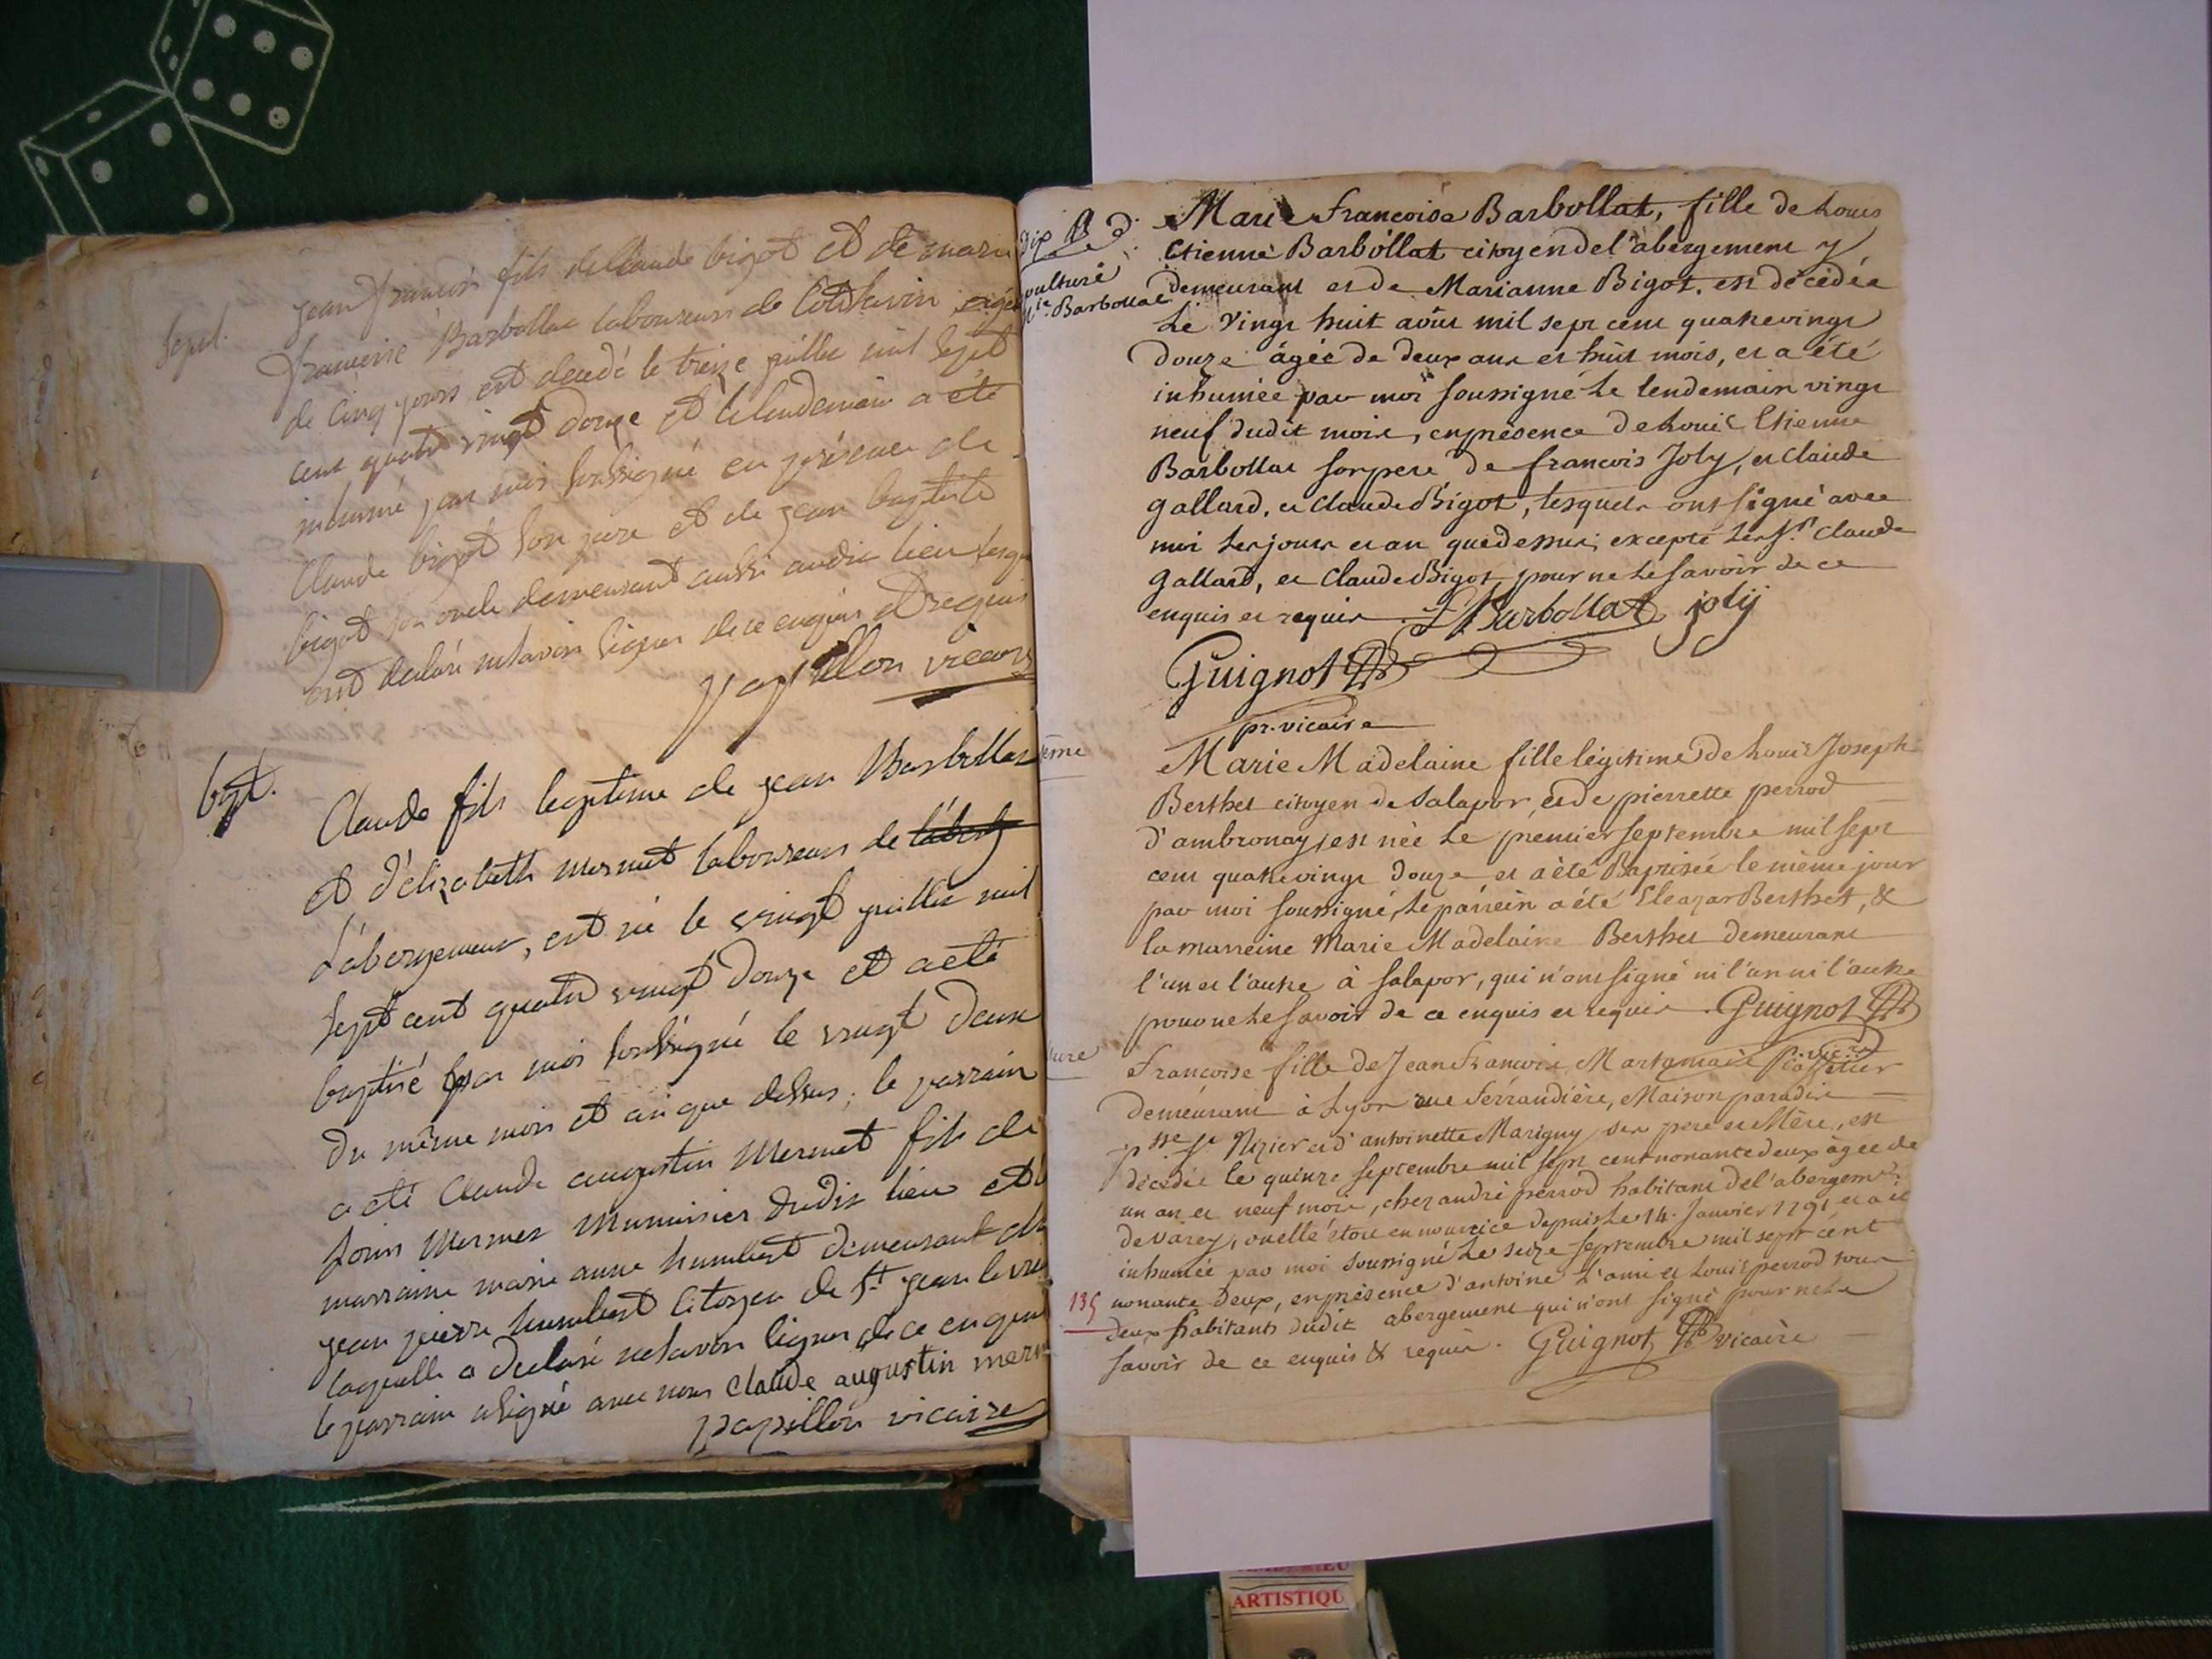 Sepul.
jean françois fils de Claude bigot et de marie
françoise Barbollat laboureurs de Cotsavin agé
de cinq jours est decedé le treize juillet mil sept
cent quatre vingt douze et le lendemain a été
inhumé par moi soussigné en présence de
Claude bigot son pere et de jean baptiste
bigot son oncle demeurant aussi audit lieu lesq
ont declaré ne savoir signer de ce enquis et requis
papillon vicaire
bapt.
Claude fils legitime de jean Barbollat
et d'élizabeth mermet laboureurs de
L'abergement, est né le vingt juillet mil
sept cent quatre vingt douze et a été
baptisé par moi soussigné le vingt deux
du même mois et an que dessus; le parrain
a été Claude augustin Mermet fils de
Mermet dudit lieu et la
marraine marie anne humbert demeurant
jean pierre humbert Citoyen de St. jean le vieux
laquelle a declaré ne savoir signer de ce enquise
le parrain a signé avec nous Claude augustin merm
papillon vicaire
dix B d.
pulture
Barbollat
Marie françoise Barbollat, fille de Louis
Etienne Barbollat citoyen de l'abergement y
demeurant et de Marianne Bigot. est décédée
Le Vingt huit août mil sept cent quatrevingt
douze âgée de deux ans et huit mois, et a été
inhumée par moi soussigné le lendemain vingt
neuf dudit mois, en présence de Louis Etienne
Barbollat son pere de françois Joly, et Claude
gallard, et Claude Bigot, lesquels ont signé avec
moi les jour et an que dessus; excepté les Srs. Claude
Gallard, et Claude Bigot, pour ne le savoir de ce
enquis et requis. L E Barbollat joly
Guignot
pr. vicaire
ême
Marie Madelaine fille légitime de Louis Joseph
Berthet citoyen de Salapor, et de pierrette perrod
d'ambronay, est née Le premier septembre mil sept
cent quatrevingt douze et a été Baptisée le même jour
par moi soussigné, Le parrein a été Eleazar Berthet, &
la marreine Marie Madelaine Berthet demeurant
l'un et l'autre à Salapor, qui n'ont signé ni l'un ni l'autre
pour ne Le savoir de ce enquis et requis. Guignot
ture
Françoise fille de Jean François Martamait
demeurant à Lyon rue Ferrandière, Maison paradis
psse. St. Nizier et d'antoinette Marigny ses pere et Mère, est
décédée le quinze septembre mil sept cent nonante deux âgée de
un an et neuf mois, chez andré perrod habitant de l'abergemt.
de varey, ou elle étoit en nourrice depuis Le 14. Janvier 1791 et a été
inhumée par moi soussigné Le seize septembre mil sept cent
135 nonante deux, en présence d'antoine L'ami et Louis perrod tous
deux habitants dudit abergement qui n'ont signé pour ne le
savoir de ce enquis & requis. Guignot vicaire
ARTISTIQU